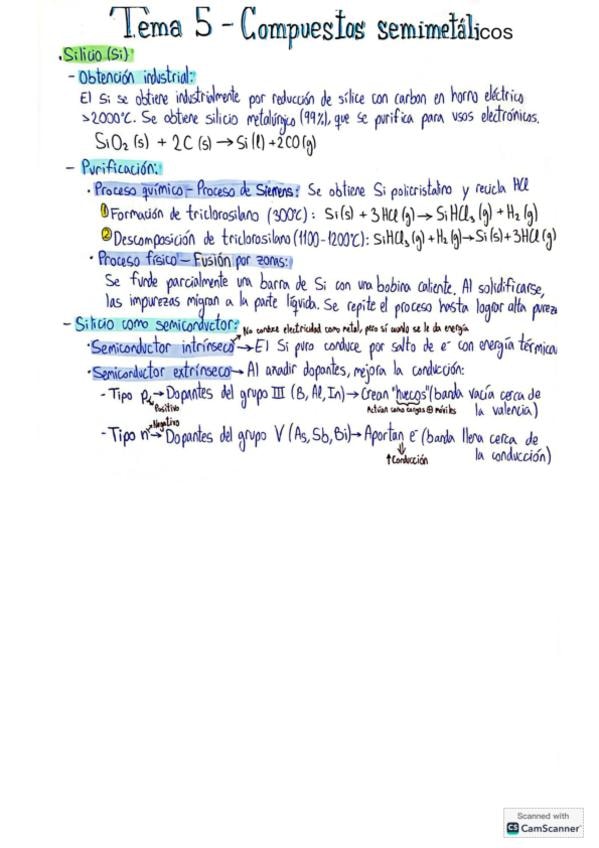 Tema 5 - Compuestos semimetálicos
· Silicio (Si):
- Obtención industrial:
El Si se obtiene industrialmente por reducción de sílice con carbon en horno eléctrico
>2000°C. Se obtiene silicio metalúrgico (99%), que se purifica para usos electrónicos.
SiO₂ (s) + 2C (s) → Si (l) + 2CO (g)
- Purificación:
· Proceso químico - Proceso de Siemens: Se obtiene Si policristalino y recicla HCl
① Formación de triclorosilano (300°C): Si(s) + 3HCl (g) → SiHCl₃ (g) + H₂ (g)
② Descomposición de triclorosilano (1100-1200°C): SiHCl₃ (g) + H₂ (g) → Si (s) + 3HCl (g)
· Proceso físico - Fusión por zonas:
Se funde parcialmente una barra de Si con una bobina caliente. Al solidificarse,
las impurezas migran a la parte líquida. Se repite el proceso hasta lograr alta pureza
- Silicio como semiconductor:
No conduce electricidad como metal, pero sí cuando se le da energía
· Semiconductor intrínseco → El Si puro conduce por salto de e⁻ con energía térmica
· Semiconductor extrínseco → Al anadir dopantes, mejora la conducción:
- Tipo p → Dopantes del grupo III (B, Al, In) → Crean "huecos" (banda vacía cerca de
Positivo
Actúan como cargas ⊕ móviles
la valencia)
Negativo
- Tipo n → Dopantes del grupo V (As, Sb, Bi) → Aportan e⁻ (banda llena cerca de
la conducción)
↑Conducción
Scanned with
CS CamScanner